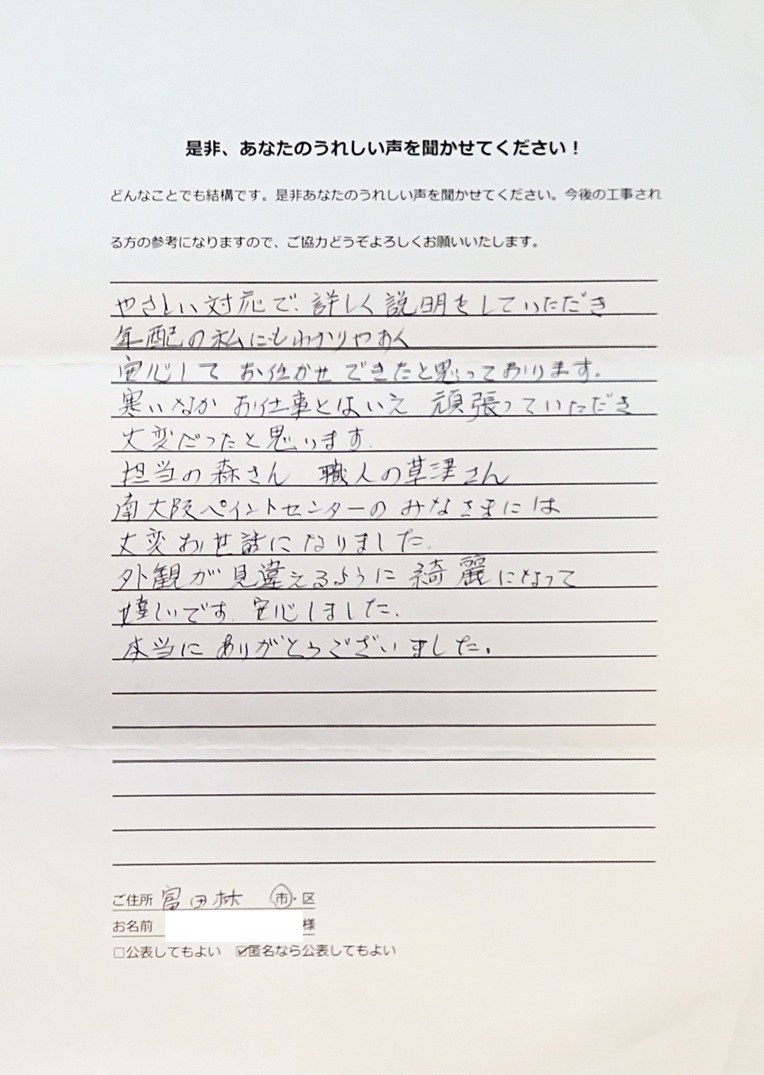 是非、あなたのうれしい声を聞かせてください！
どんなことでも結構です。是非あなたのうれしい声を聞かせてください。今後の工事され
る方の参考になりますので、ご協力どうぞよろしくお願いいたします。
やさしい対応で、詳しく説明をしていただき
年配の私にもわかりやすく
安心して お任かせ できたと思っております。
寒いなか お仕事とはいえ 頑張っていただき
大変だったと思います。
担当の森さん 職人の草津さん
南大阪ペイントセンターの みなさまには
大変お世話になりました。
外観が見違えるように 綺麗になって
嬉しいです。安心しました。
本当に ありがとうございました。
ご住所 富田林 市・区
お名前 様
□公表してもよい ☑匿名なら公表してもよい